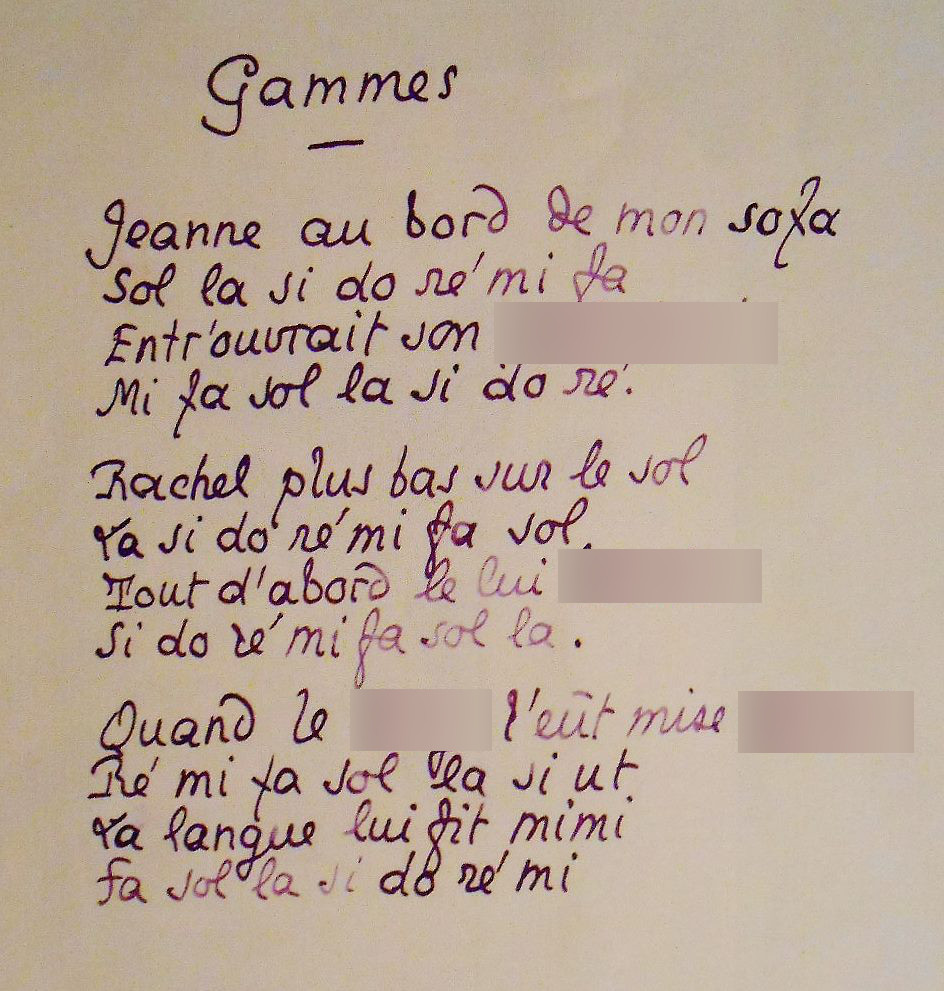 Gammes
Jeanne au bord de mon sofa
Sol la si do ré mi fa
Entr'ouvrait son
Mi fa sol la si do ré.
Rachel plus bas sur le sol
La si do ré mi fa sol.
Tout d'abord le lui
Si do ré mi fa sol la.
Quand le l'eût mise
Ré mi fa sol la si ut
La langue lui fit mimi
Fa sol la si do ré mi